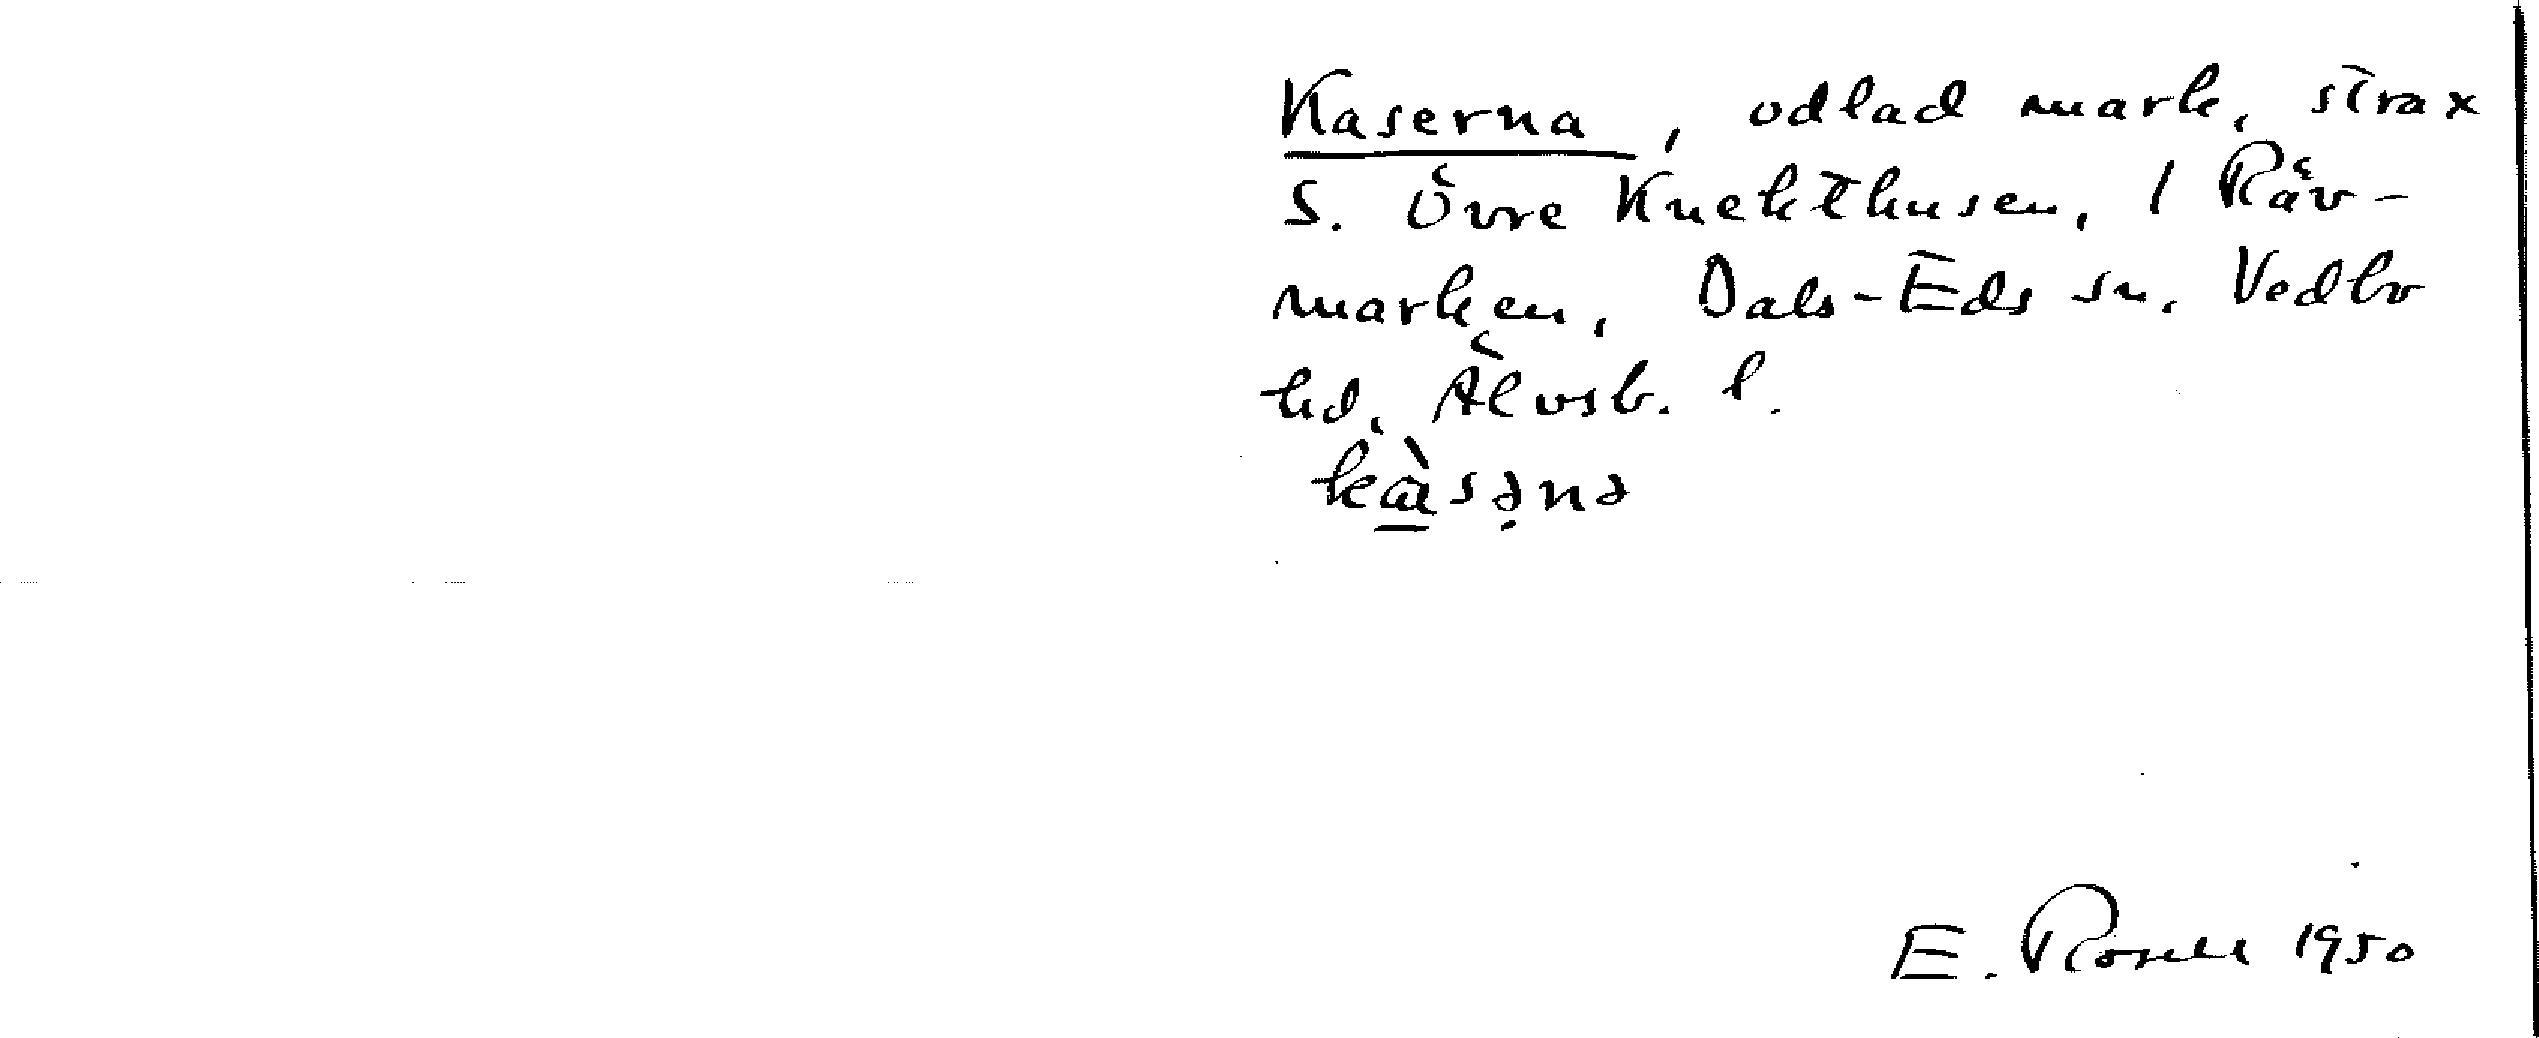 Kaserna, odlad mark, strax
S. Övre Knekthusen, 1 Räv-
marken, Dals-Eds sn. Vedbo
hd, Älvsb. l.
kɑ̀sə̣nə
E. Rosell 1950